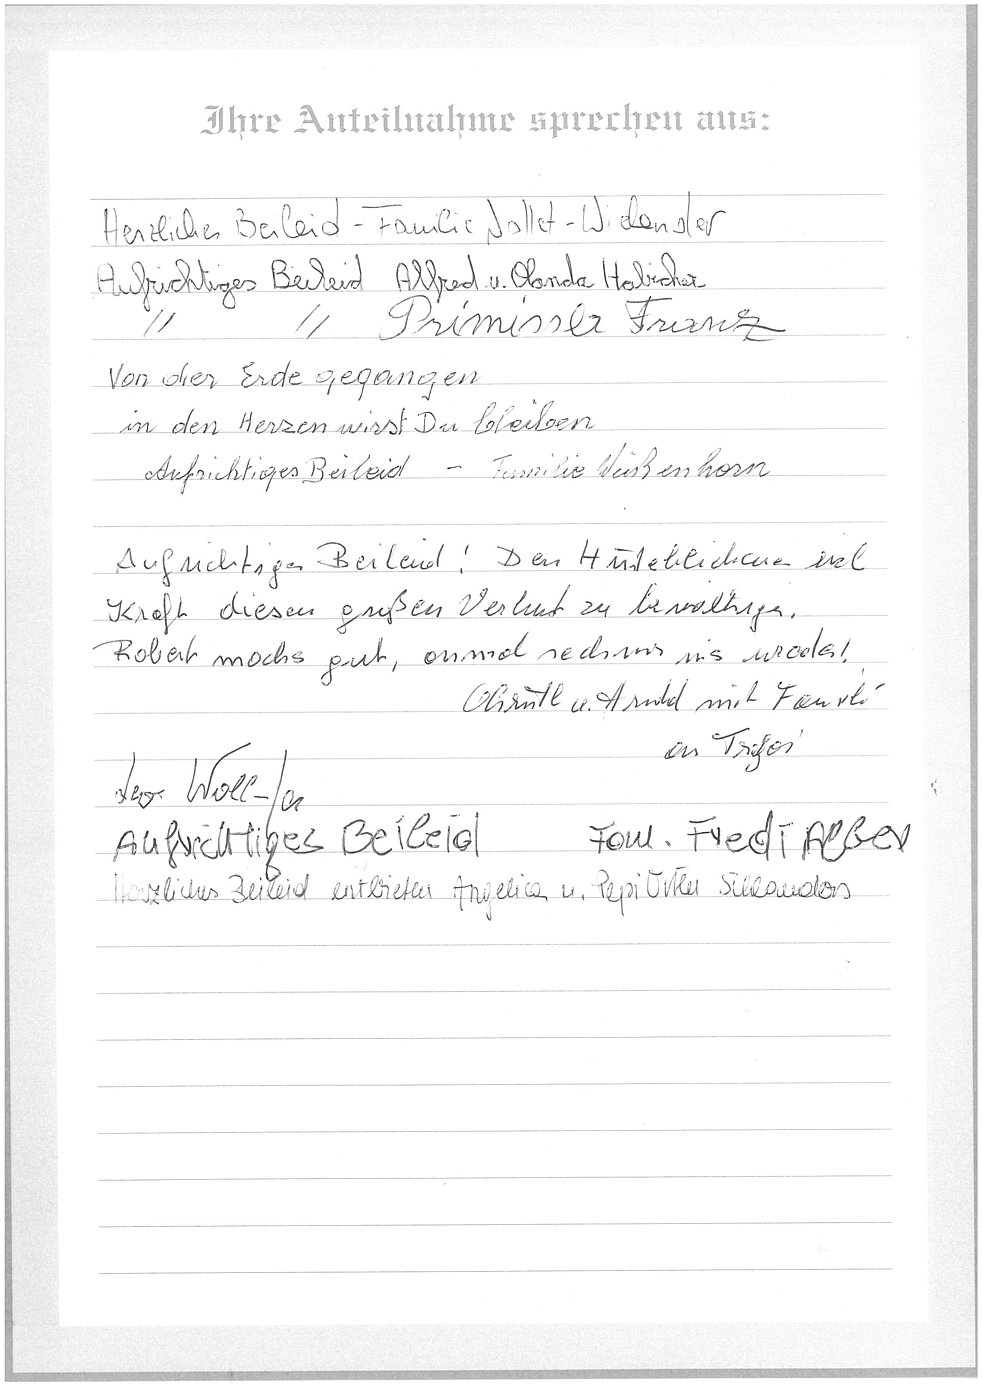 Ihre Anteilnahme sprechen aus:
Herzliches Beileid - Familie - Widensler
Aufrichtiges Beileid Alfred u. Olanda Habicher
" " Primisser Franz
Von der Erde gegangen
in den Herzen wirst Du bleiben
Aufrichtiges Beileid - Familie Weißenhorn
Aufrichtiges Beileid! Den Hinterbliebenen viel
Kraft diesen großen Verlust zu bewältigen.
Robert machs gut, ins
u. Arnold mit Familie
Trafoi
Aufrichtiges Beileid Fam. Fredi
Herzliches Beileid entbieten Angelica u. Pepi